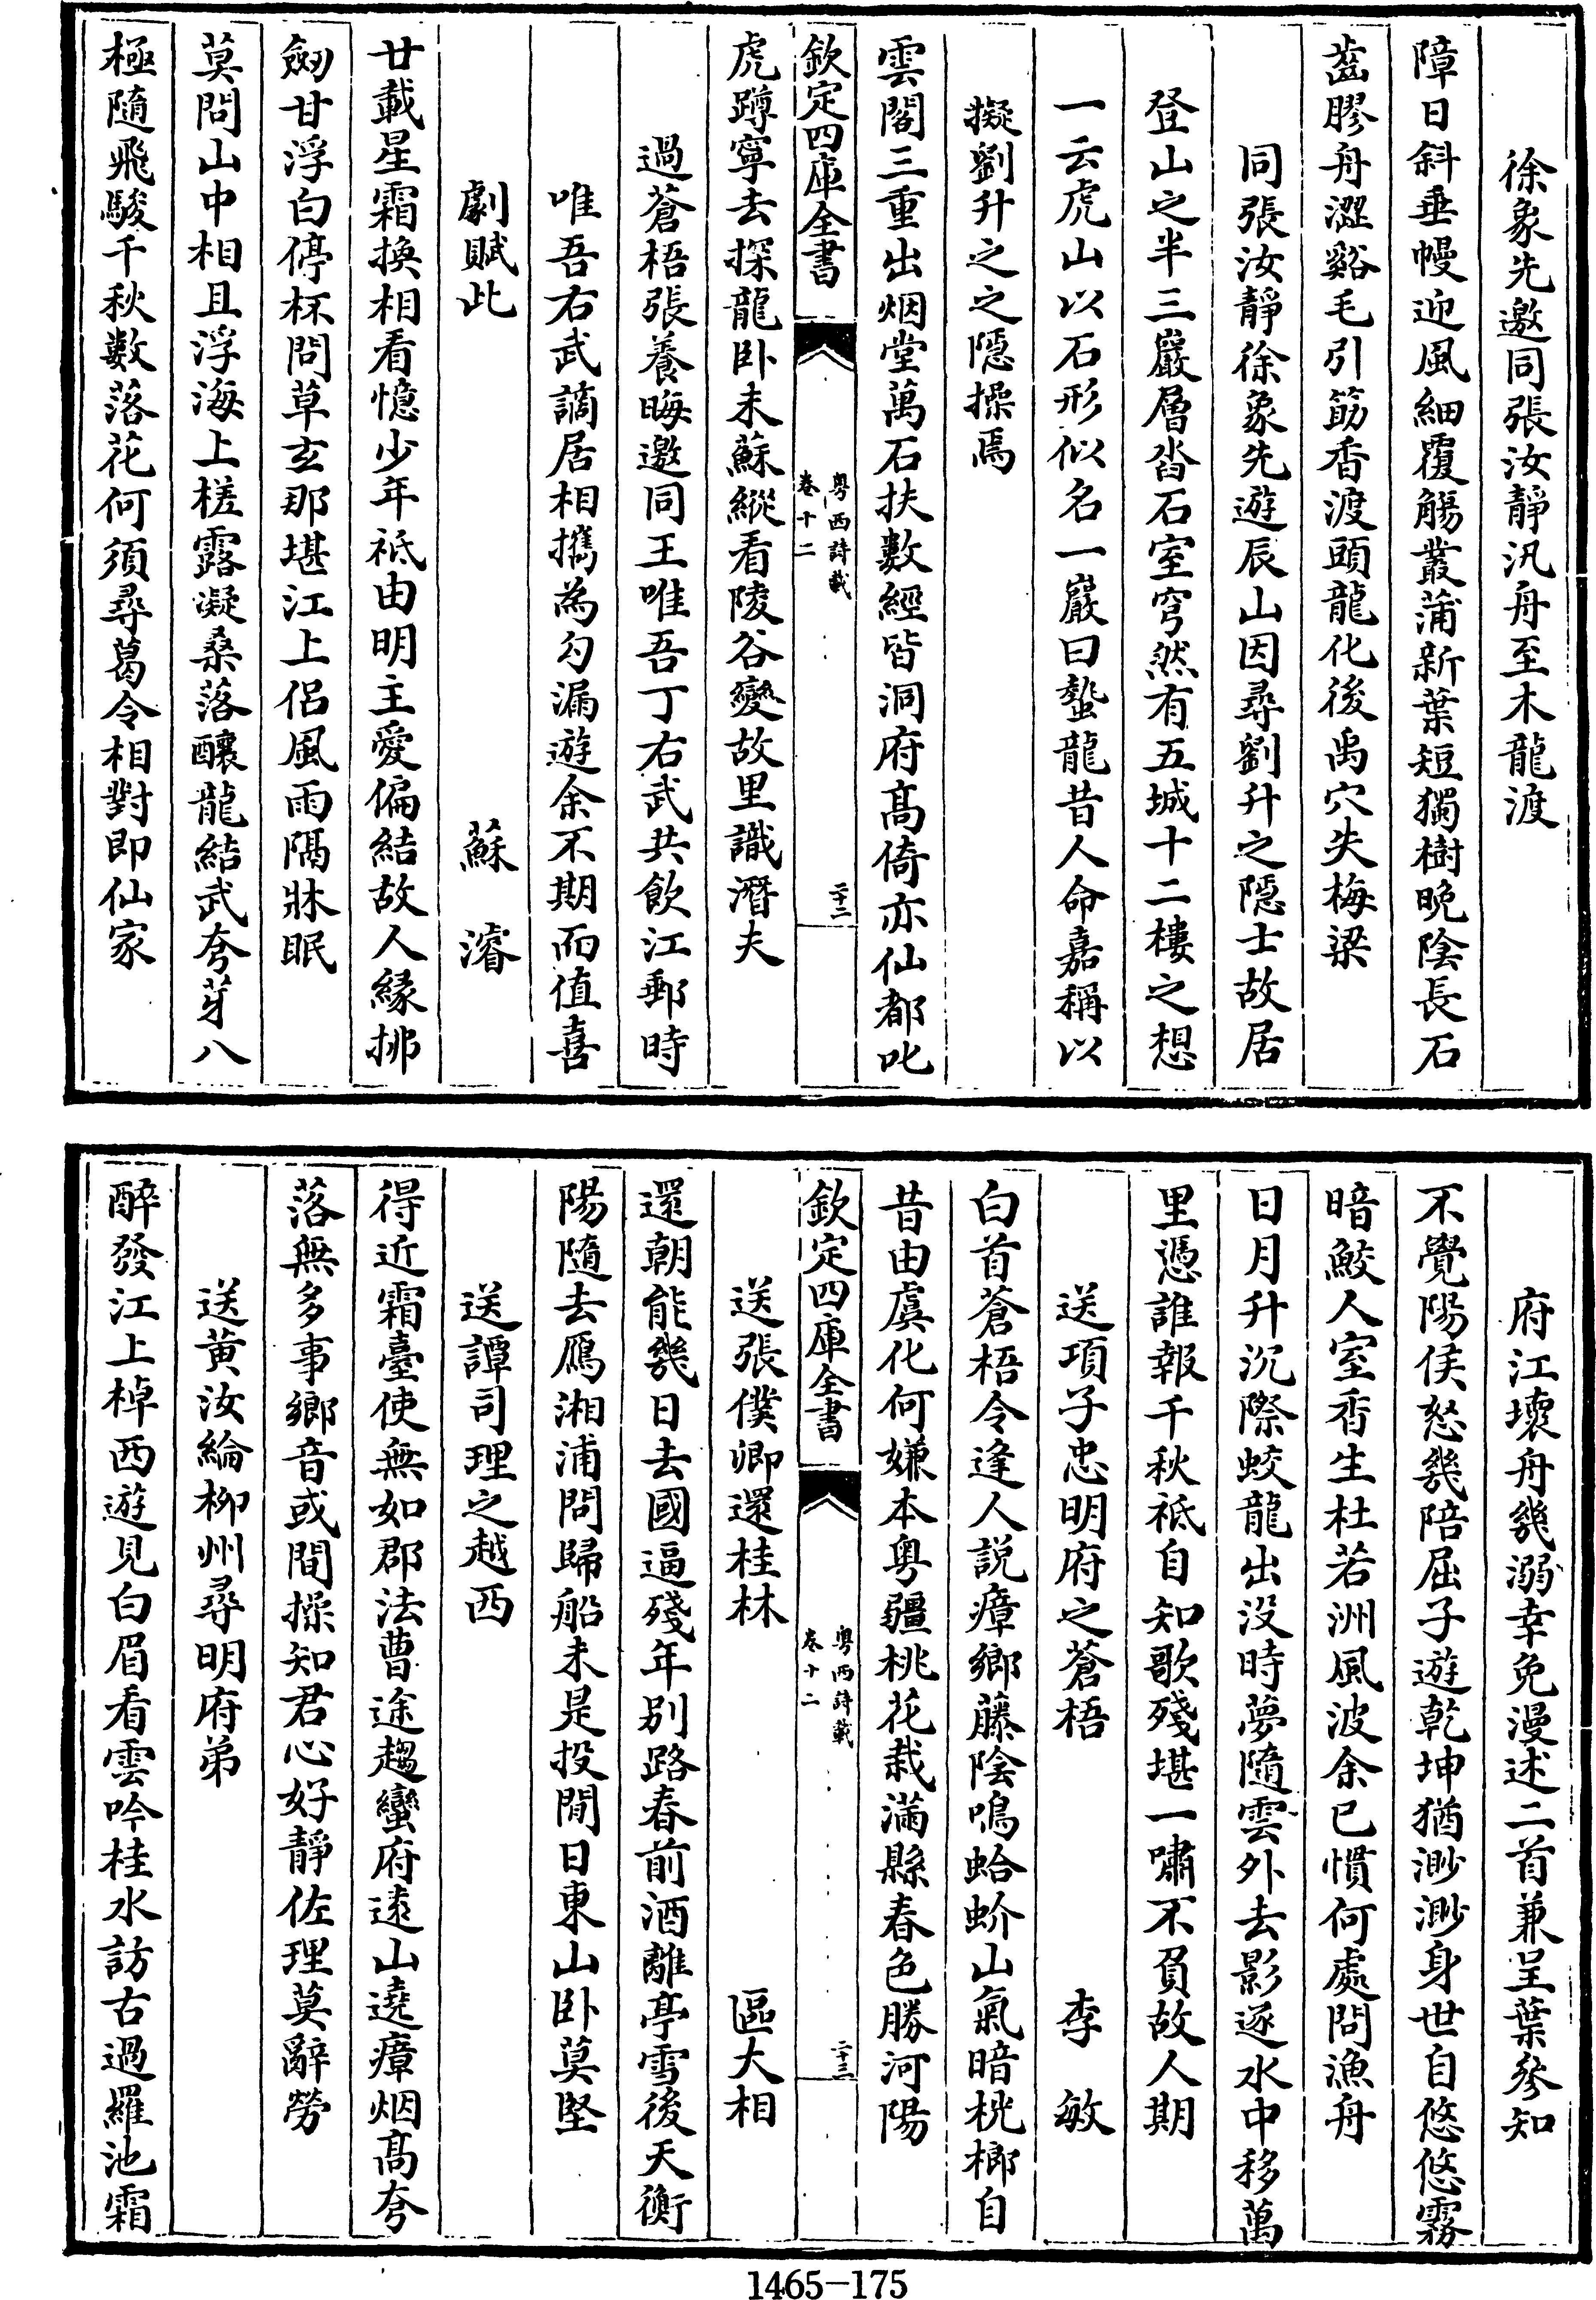 徐象先邀同張汝靜汎舟至木龍渡
障日斜垂幔迎風細覆觴叢蒲新葉短獨樹晚陰長石
齒膠舟澀谿毛引筯香渡頭龍化後禹穴失梅梁
同張汝靜徐象先遊辰山因尋劉升之隱士故居
登山之半三巖層沓石室穹然有五城十二樓之想
一云虎山以石形似名一巖曰蟄龍昔人命嘉稱以
擬劉升之之隱操焉
雲閣三重出烟堂萬石扶數經皆洞府高倚亦仙都叱
欽定四庫全書
粵西詩載
卷十二
二十二
虎蹲寧去探龍卧未蘇縱看陵谷變故里識潛夫
過蒼梧張養晦邀同王唯吾丁右武共飲江郵時
唯吾右武謫居相擕為勾漏遊余不期而值喜
劇賦此
蘇濬
廿載星霜換相看憶少年祗由明主愛偏結故人緣挪
劒甘浮白停杯問草玄那堪江上侶風雨隔牀眠
莫問山中相且浮海上槎露凝桑落釀龍結武夸芽八
極隨飛駿千秋數落花何須尋葛令相對即仙家
府江壞舟幾溺幸免漫述二首兼呈葉參知
不覺陽侯怒幾陪屈子遊乾坤猶渺渺身世自悠悠霧
暗鮫人室香生杜若洲風波余已慣何處問漁舟
日月升沉際蛟龍出没時夢隨雲外去影逐水中移萬
里憑誰報千秋祗自知歌殘堪一嘯不負故人期
送項子忠明府之蒼梧
李敏
白首蒼梧令逢人説瘴鄉藤陰鳴蛤蚧山氣暗桄榔自
昔由虞化何嫌本粵疆桃花栽滿縣春色勝河陽
欽定四庫全書
粵西詩載
卷十二
二十三
送張僕卿還桂林
區大相
還朝能幾日去國逼殘年别路春前酒離亭雪後天衡
陽隨去鴈湘浦問歸船未是投閒日東山卧莫堅
送譚司理之越西
得近霜臺使無如郡法曹途趨蠻府遠山遶瘴烟高夸
落無多事鄉音或間操知君心好靜佐理莫辭勞
送黃汝綸柳州尋明府弟
醉發江上棹西遊見白眉看雲吟桂水訪古過羅池霜
1465-175